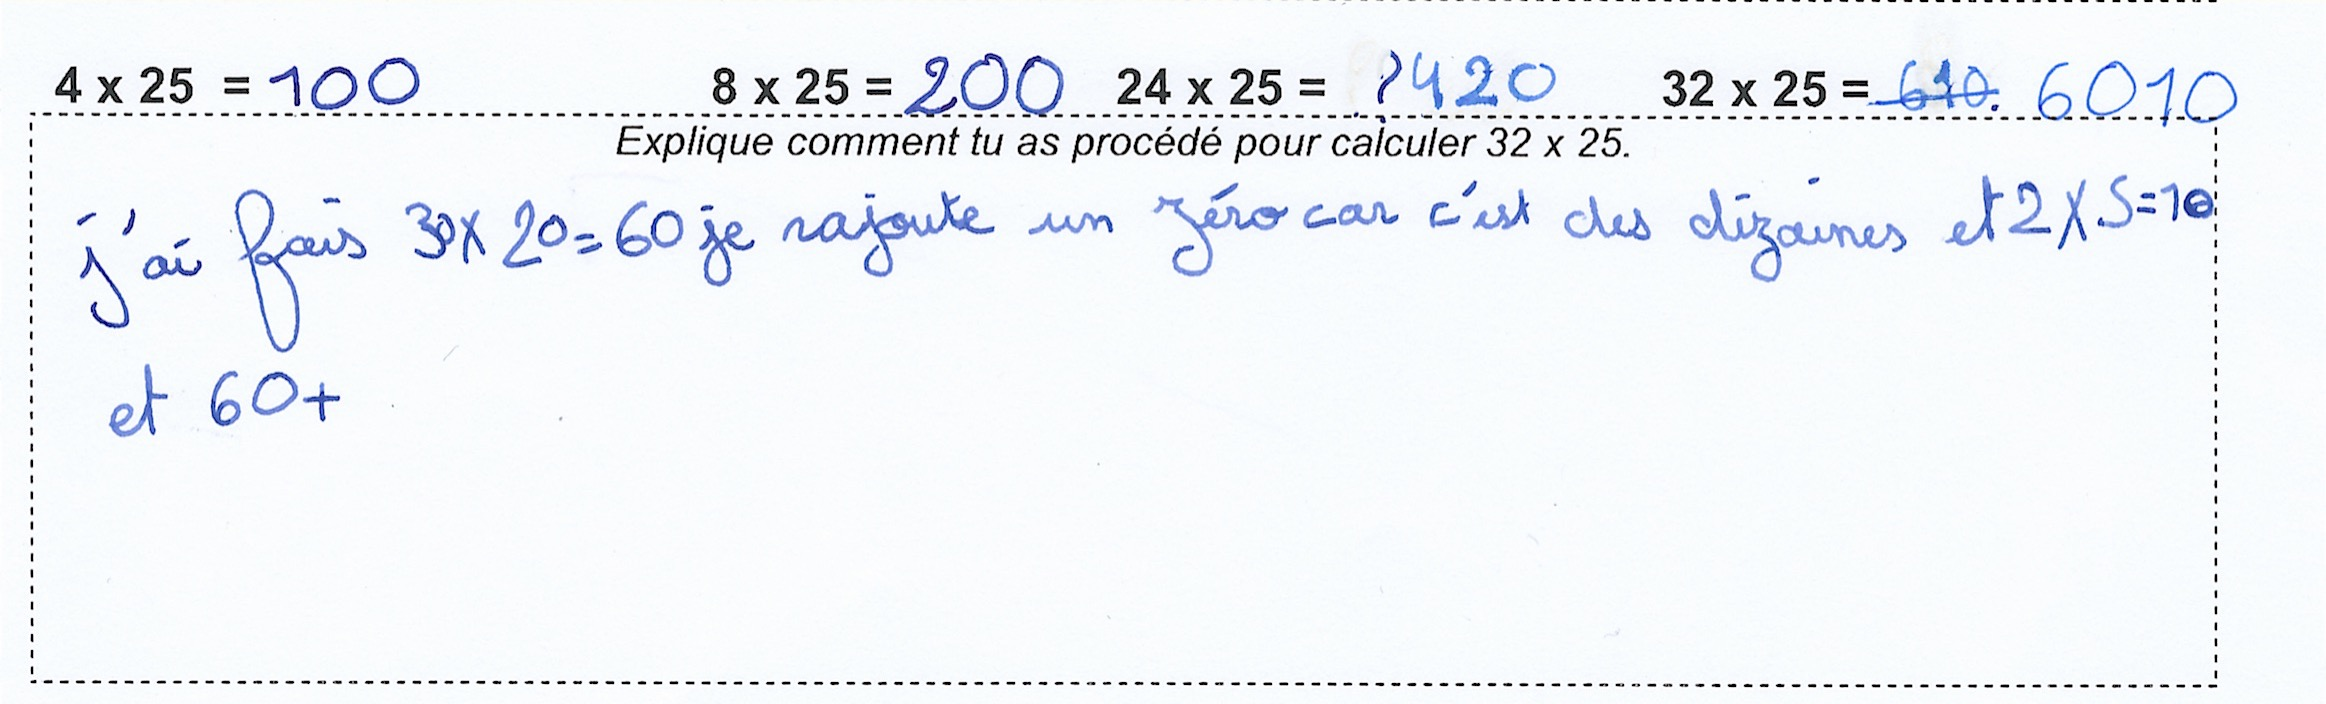 4 x 25 = 100 8 x 25 = 200 24 x 25 = ? 420 32 x 25 = 610. 6010
Explique comment tu as procédé pour calculer 32 x 25.
j'ai fais 30 x 20 = 60 je rajoute un zéro car c'est des dizaines et 2 x 5 = 10
et 60 +